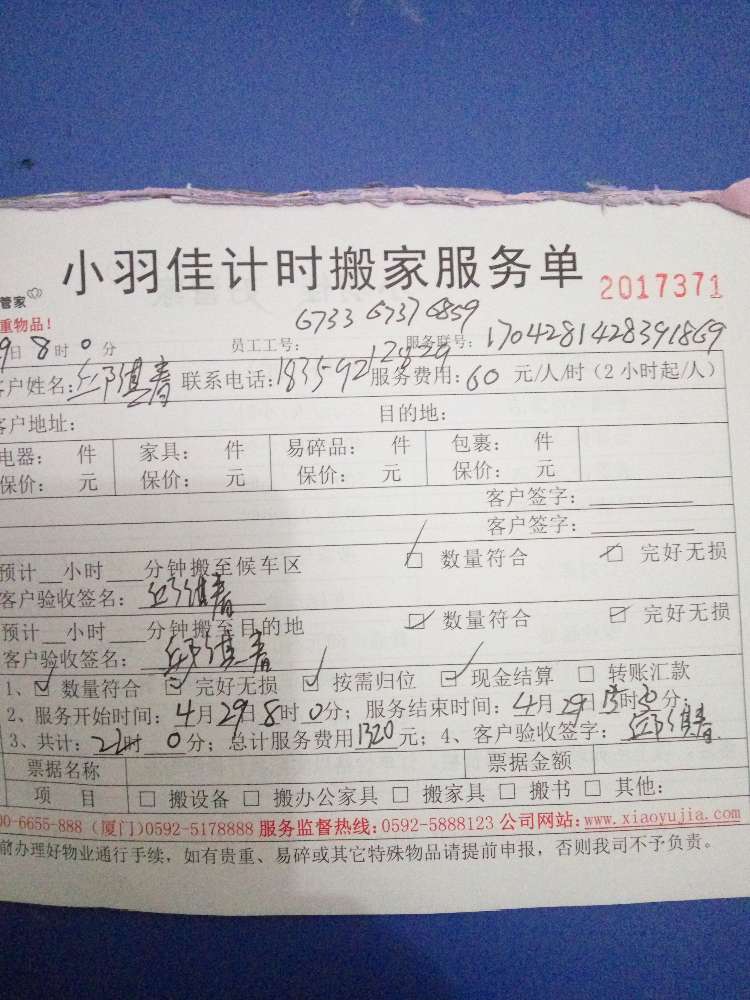 小羽佳计时搬家服务单 2017371
管家
重物品!
6733 6737 6859
9日8时0分 员工工号: 服务联号: 1704281428391869
客户姓名: 联系电话: 服务费用:60元/人/时(2小时起/人)
客户地址: 目的地:
电器: 件 家具: 件 易碎品: 件 包裹: 件
保价: 元 保价: 元 保价: 元 保价: 元
客户签字:
客户签字:
预计__小时___分钟搬至候车区 □ 数量符合 □ 完好无损
客户验收签名:
预计__小时___分钟搬至目的地 □ 数量符合 □ 完好无损
客户验收签名:
1、☑ 数量符合 ☑ 完好无损 ☑ 按需归位 ☑ 现金结算 □ 转账汇款
2、服务开始时间:4月29日8时0分;服务结束时间:4月29日13时30分;
3、共计:22时0分;总计服务费用1320元;4、客户验收签字:
票据名称 票据金额
项 目 □ 搬设备 □ 搬办公家具 □ 搬家具 □ 搬书 □ 其他:
00-6655-888 (厦门)0592-5178888 服务监督热线:0592-5888123 公司网站:www.xiaoyujia.com
前办理好物业通行手续,如有贵重、易碎或其它特殊物品请提前申报,否则我司不予负责。